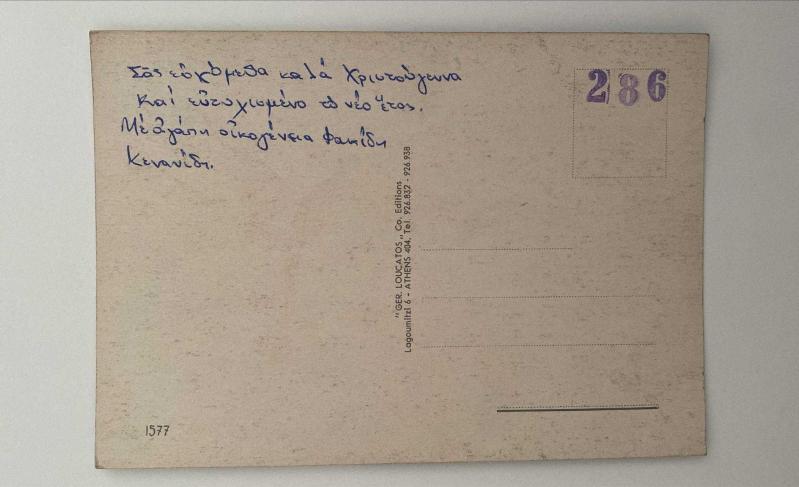 Σᾶς εὐχόμεθα καλά Χριστούγεννα
Καί εὐτυχισμένο τό νέο ἔτος.
Μέ ἀγάπη οἰκογένεια
Κενανίδη.
286
"GER. LOUCATOS„ Co. Editions
Lagoumitzi 6 - ATHENS 404, Tel. 926.832 - 926.938
1577